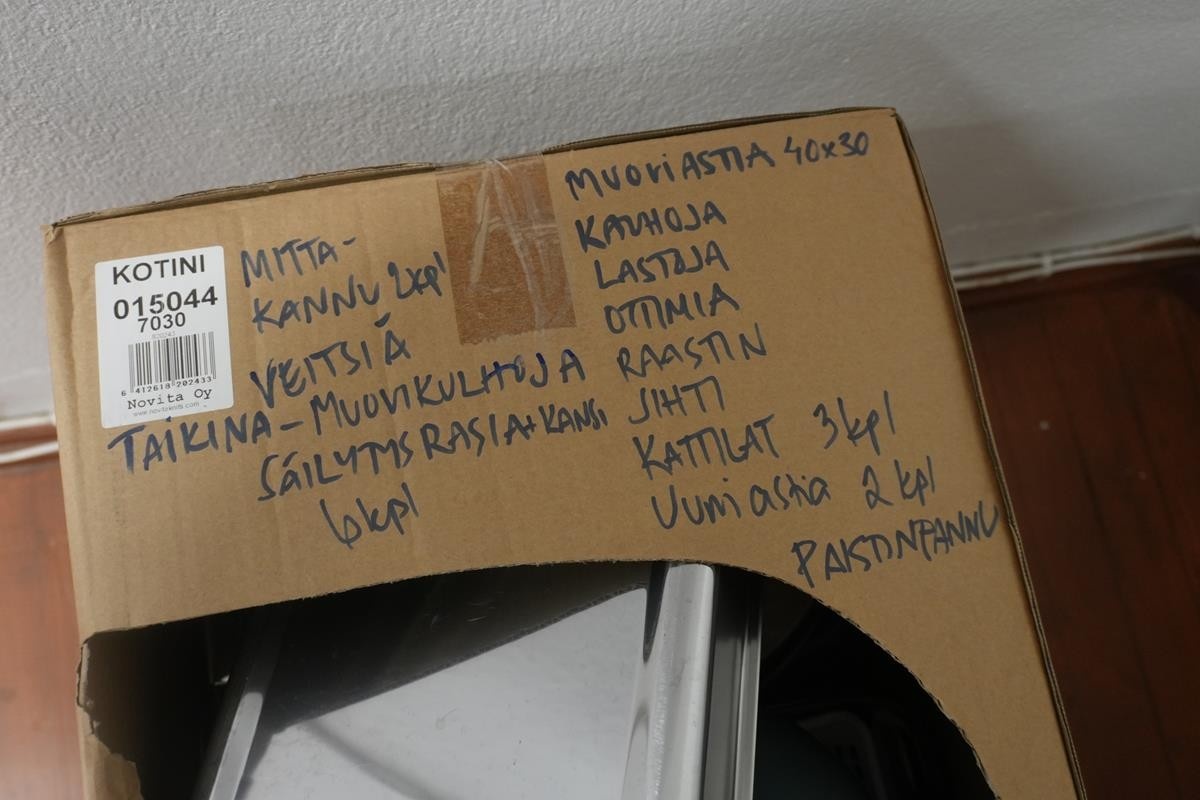 KOTINI
015044
7030
820243
6 412618 202433
Novita Oy
www.novitaknits.com
MITTA-
KANNU 2kpl
VEITSIÄ
TAIKINA-MUOVIKULHOJA
SÄILYTYSRASIA+KANSI
6kpl
MUOVIASTIA 40x30
KAUHOJA
LASTOJA
OTTIMIA
RAASTIN
SIHTI
KATTILAT 3kpl
Uuniastia 2kpl
PAISTINPANNU